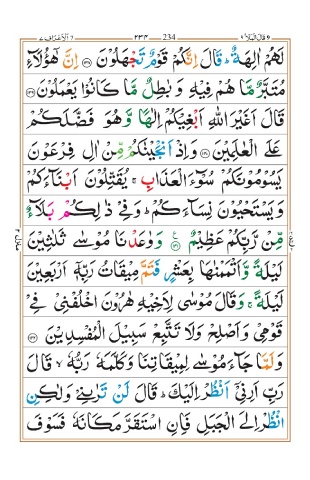 قال الملا ٩ 234 ٢٣٤ الاعراف ٧
لَهُمْ اٰلِهَةٌ ؕ قَالَ اِنَّكُمْ قَوْمٌ تَجْهَلُوْنَ ﴿۱۳۸﴾ اِنَّ هٰۤؤُلَآءِ
مُتَبَّرٌ مَّا هُمْ فِیْهِ وَ بٰطِلٌ مَّا كَانُوْا یَعْمَلُوْنَ ﴿۱۳۹﴾
قَالَ اَغَیْرَ اللّٰهِ اَبْغِیْكُمْ اِلٰهًا وَّ هُوَ فَضَّلَكُمْ
عَلَی الْعٰلَمِیْنَ ﴿۱۴۰﴾ وَ اِذْ اَنْجَیْنٰكُمْ مِّنْ اٰلِ فِرْعَوْنَ
یَسُوْمُوْنَكُمْ سُوْٓءَ الْعَذَابِ ۚ یُقَتِّلُوْنَ اَبْنَآءَكُمْ
وَ یَسْتَحْیُوْنَ نِسَآءَكُمْ ؕ وَ فِیْ ذٰلِكُمْ بَلَآءٌ
مِّنْ رَّبِّكُمْ عَظِیْمٌ ﴿۱۴۱﴾ وَ وٰعَدْنَا مُوْسٰی ثَلٰثِیْنَ
لَیْلَةً وَّ اَتْمَمْنٰهَا بِعَشْرٍ فَتَمَّ مِیْقَاتُ رَبِّهٖۤ اَرْبَعِیْنَ
لَیْلَةً ۚ وَ قَالَ مُوْسٰی لِاَخِیْهِ هٰرُوْنَ اخْلُفْنِیْ فِیْ
قَوْمِیْ وَ اَصْلِحْ وَ لَا تَتَّبِعْ سَبِیْلَ الْمُفْسِدِیْنَ ﴿۱۴۲﴾
وَ لَمَّا جَآءَ مُوْسٰی لِمِیْقَاتِنَا وَ كَلَّمَهٗ رَبُّهٗ ۙ قَالَ
رَبِّ اَرِنِیْۤ اَنْظُرْ اِلَیْكَ ؕ قَالَ لَنْ تَرٰىنِیْ وَ لٰكِنِ
انْظُرْ اِلَی الْجَبَلِ فَاِنِ اسْتَقَرَّ مَكَانَهٗ فَسَوْفَ